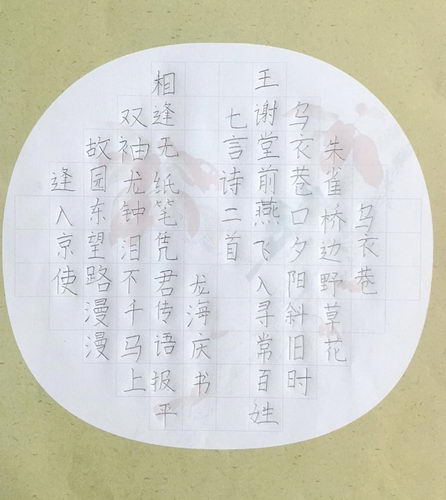 乌衣巷
朱雀桥边野草花
乌衣巷口夕阳斜旧时
王谢堂前燕飞入寻常百姓
七言诗二首
龙海庆书
相逢无纸笔凭君传语报平
双袖龙钟泪不干马上
故园东望路漫漫
逢入京使